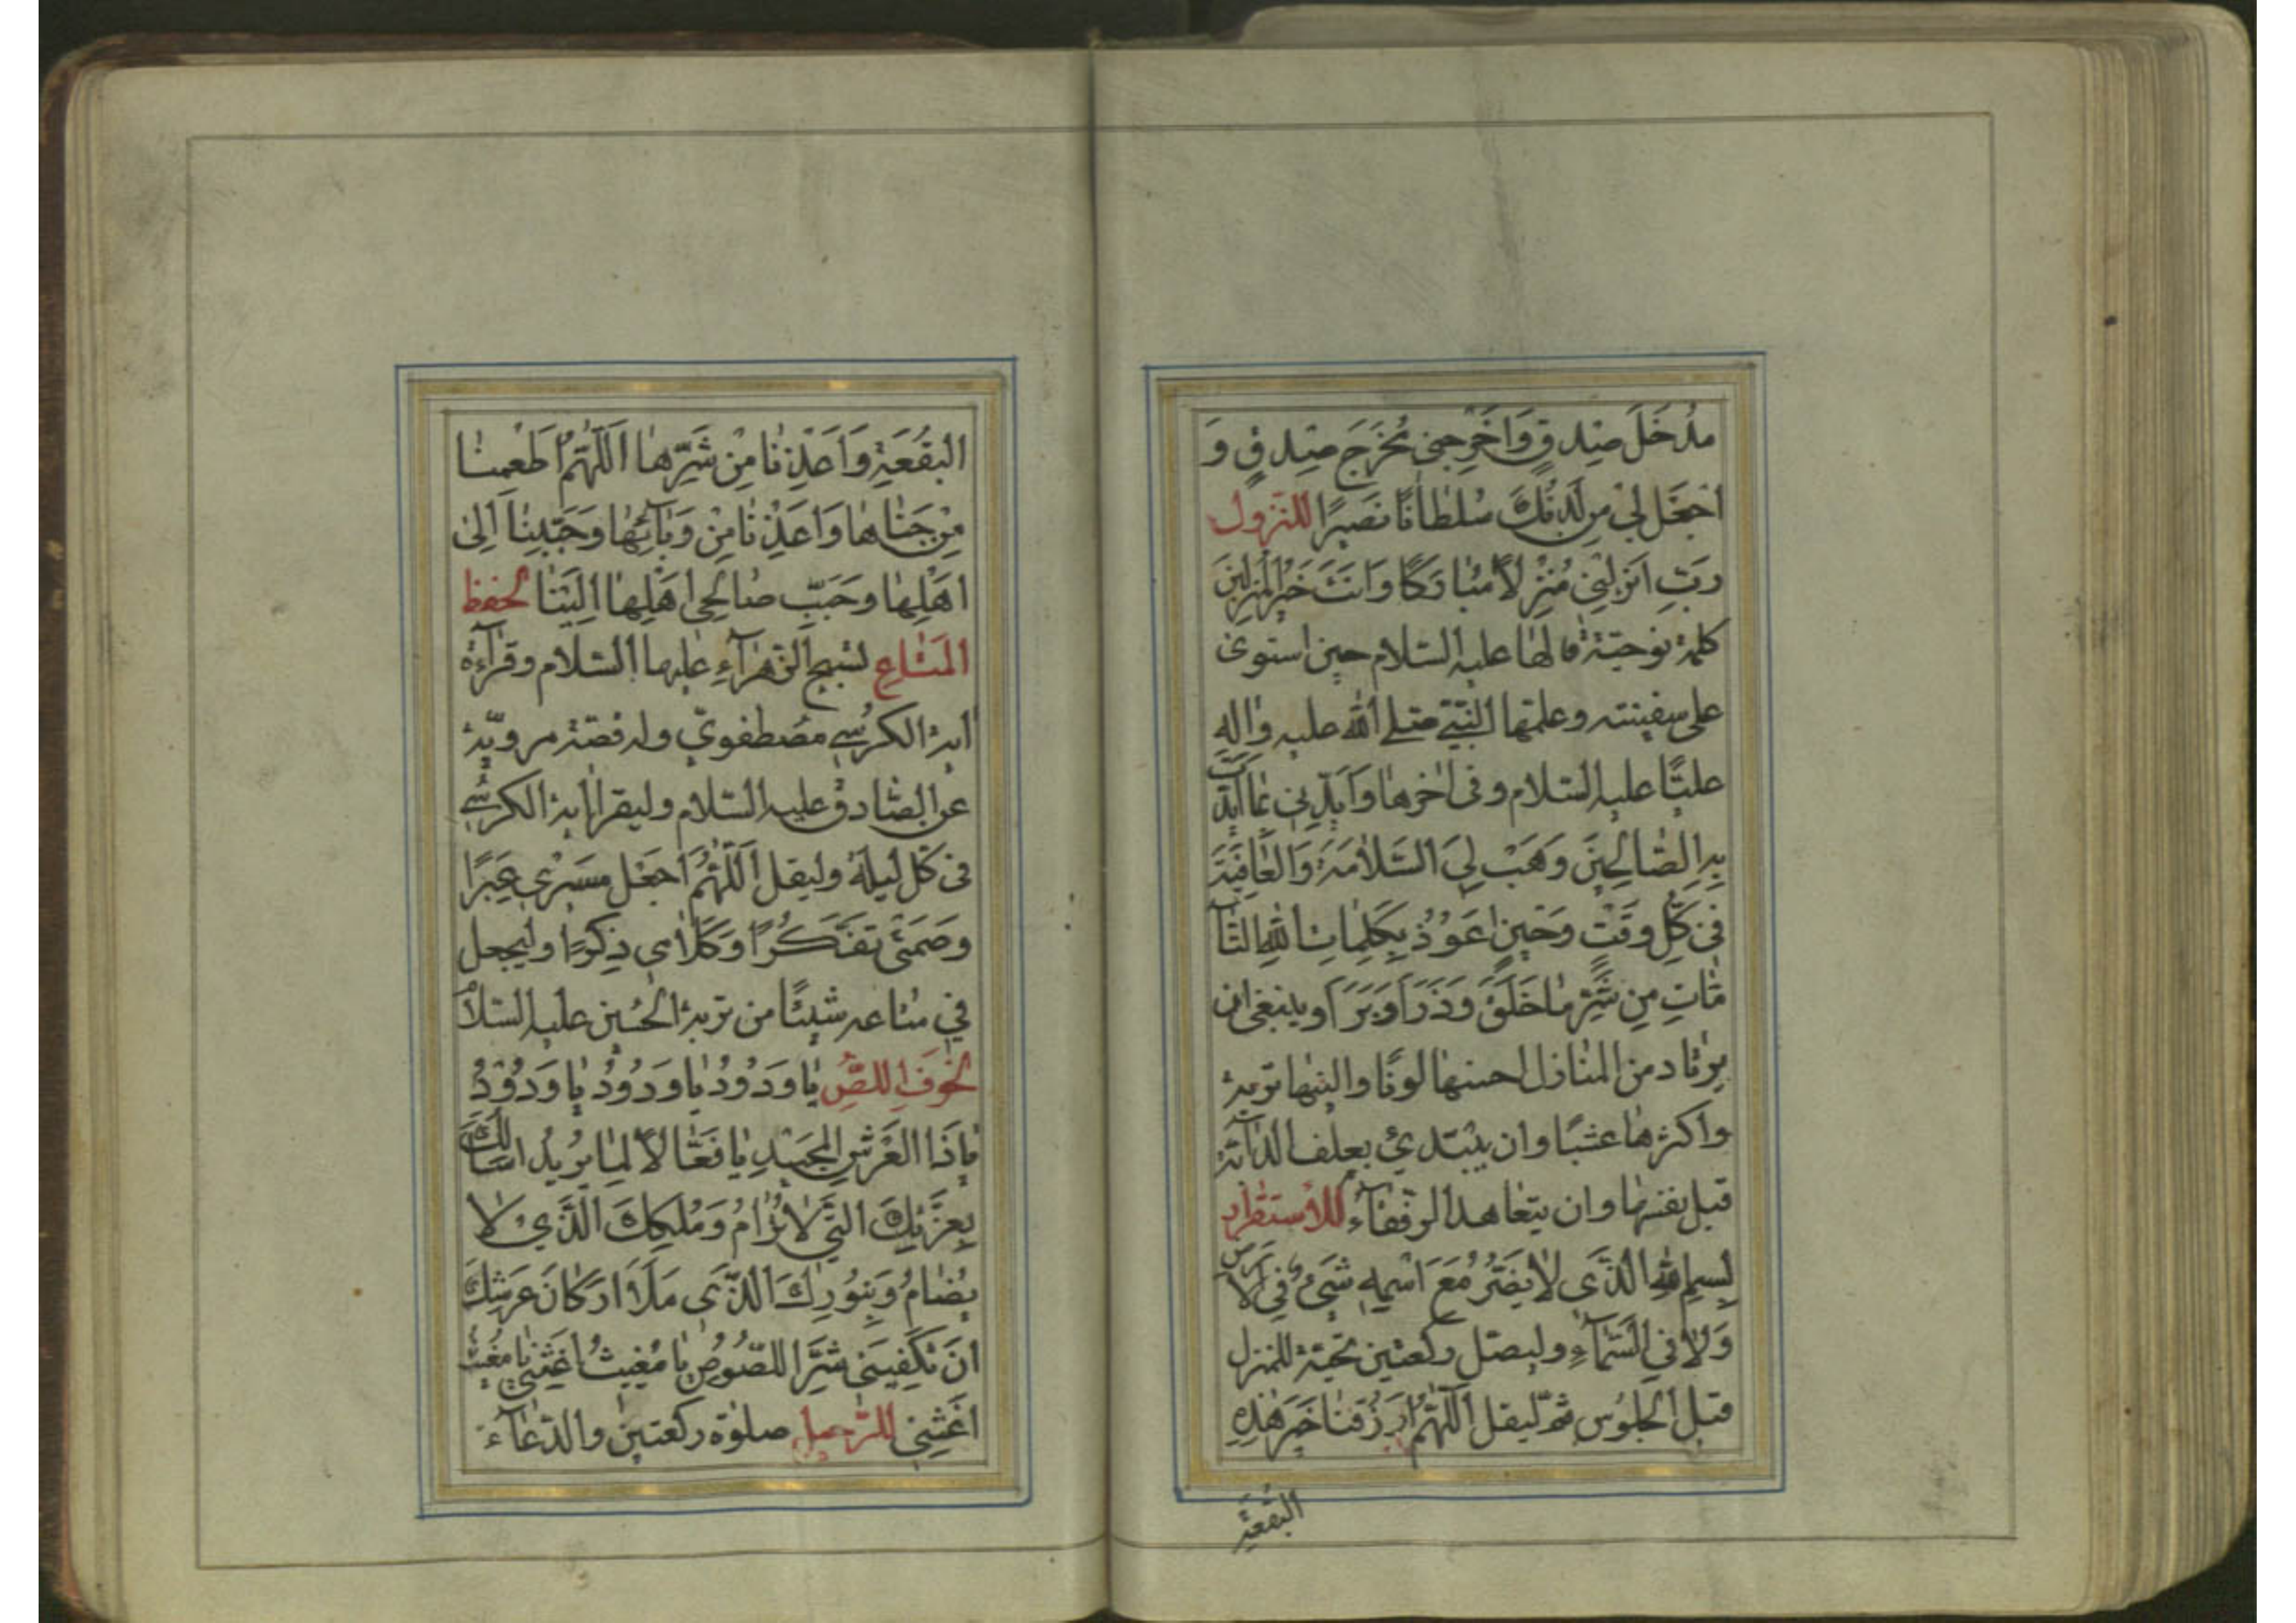 مُدْخَلَ صِدْقٍ وَاَخْرِجْنى مُخْرَجَ صِدْقٍ وَ
اجْعَلْ لِىْ مِن لَّدُنْكَ سُلْطَانًا نَصِيرًا للنزول
رَبِّ اَنْزِلْنِى مُنْزَلًا مُبَارَكًا وَاَنْتَ خَيْرُ الْمُنْزِلِينَ
كلمة نوحيّة قالها عليه السلام حين استوى
على سفينته وعلمها النبىّ صلى الله عليه واله
عليًّا عليه السلام وفى اخرها وَاَيِّدْنِى بِمَا اَيَّدْتَ
بِهِ الصَّالِحِينَ وَهَبْ لِىَ السَّلَامَةَ وَالْعَافِيَةَ
فِى كُلِّ وَقْتٍ وَحِينٍ اَعُوْذُ بِكَلِمَاتِ اللّهِ التَّآ
مَّاتِ مِنْ شَرِّ مَا خَلَقَ وَذَرَاَ وَبَرَاَ وينبغى ان
يرتاد من المنازل احسنها لونًا والينها تربة
واكثرها عشبًا وان يبتدئ بعلف الدآبّة
قبل نفسها وان يتعاهد الرفقآء للاستقرار
بِسمِ اللهِ الَّذِى لَا يَضُرُّ مَعَ اسْمِهِ شَىْءٌ فِى الْاَرْضِ
وَلَا فِى السَّمَآءِ وليصلّ ركعتين تحيّة للمنزل
قبل الجلوس ثمّ ليقل اَللّهُمَّ ارْزُقْنَا خَيْرَ هٰذِهِ
البقعة
البُقْعَةِ وَاَعِذْنَا مِنْ شَرِّهَا اَللّهُمَّ اَطْعِمْنَا
مِنْ جَنَاهَا وَاَعِذْنَا مِنْ وَبَآئِهَا وَحَبِّبْنَا اِلىٰ
اَهْلِهَا وَحَبِّبْ صَالِحِى اَهْلِهَا اِلَيْنَا لحفظ
المَتَاعِ تسبيح الزهرآء عليها السلام وقرآءة
اية الكرسى مصطفوىّ وله قصّة مرويّة
عن الصادق عليه السلام وليقرا اية الكرسى
فى كل ليلة وليقل اَللّهُمَّ اجْعَلْ مَسيرى عِبَرًا
وصَمْتى تَفَكُّرًا وَكَلَامى ذِكْرًا وليجعل
فى متاعه شيئًا من تربة الحسين عليه السلام
لخوف اللصّ يَا وَدُوْدُ يَا وَدُوْدُ يَا وَدُوْدُ
يَا ذَا الْعَرْشِ الْمَجِيدِ يَا فَعَّالًا لِمَا يُرِيدُ اَسْاَلُكَ
بِعِزَّتِكَ الَّتِى لَا تُرَامُ وَمُلْكِكَ الَّذِى لَا
يُضَامُ وَبِنُورِكَ الَّذِى مَلَاَ اَرْكَانَ عَرْشِكَ
اَنْ تَكْفِيَنِى شَرَّ اللُّصُوصِ يَا مُغِيثُ اَغِثْنِى يَا مُغِيثُ
اَغِثْنِى للترحل صلوة ركعتين والدعآء